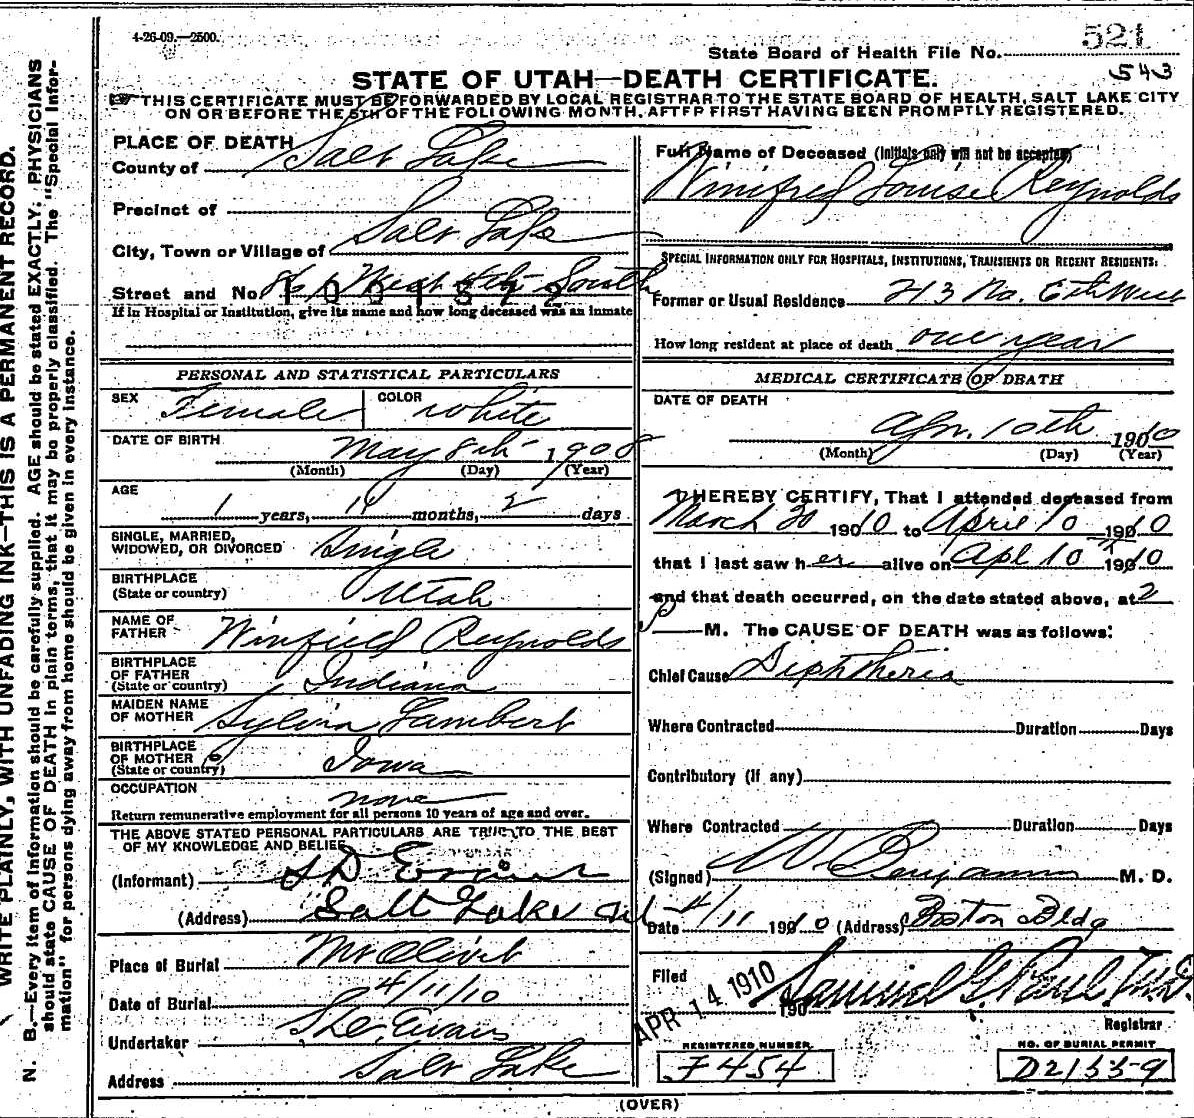 WRITE PLAINLY, WITH UNFADING INK—THIS IS A PERMANENT RECORD.
N. B.—Every item of information should be carefully supplied. AGE should be stated EXACTLY; PHYSICIANS
should state CAUSE OF DEATH in plain terms, that it may be properly classified. The "Special Infor-
mation" for persons dying away from home should be given in every instance.
4-26-09.—2500.
521
State Board of Health File No.
543
STATE OF UTAH—DEATH CERTIFICATE.
THIS CERTIFICATE MUST BE FORWARDED BY LOCAL REGISTRAR TO THE STATE BOARD OF HEALTH, SALT LAKE CITY
ON OR BEFORE THE 5TH OF THE FOLLOWING MONTH, AFTER FIRST HAVING BEEN PROMPTLY REGISTERED.
PLACE OF DEATH
County of Salt Lake
Precinct of
City, Town or Village of Salt Lake
Street and No. West 4th South
If in Hospital or Institution, give its name and how long deceased was an inmate
PERSONAL AND STATISTICAL PARTICULARS
SEX Female COLOR White
DATE OF BIRTH May 8th 1908
(Month) (Day) (Year)
AGE
1 years, months, 2 days
SINGLE, MARRIED,
WIDOWED, OR DIVORCED Single
BIRTHPLACE
(State or country) Utah
NAME OF
FATHER Winfield Reynolds
BIRTHPLACE
OF FATHER
(State or country) Indiana
MAIDEN NAME
OF MOTHER Sylvia Lambert
BIRTHPLACE
OF MOTHER
(State or country) Iowa
OCCUPATION none
Return remunerative employment for all persons 10 years of age and over.
THE ABOVE STATED PERSONAL PARTICULARS ARE TRUE TO THE BEST
OF MY KNOWLEDGE AND BELIEF
(Informant) S D Evans
(Address) Salt Lake
Place of Burial Mt Olivet
Date of Burial 4/11/10
Undertaker Evans
Address Salt Lake
Full Name of Deceased (Initials only will not be accepted)
Winifred Louise Reynolds
SPECIAL INFORMATION ONLY FOR HOSPITALS, INSTITUTIONS, TRANSIENTS OR RECENT RESIDENTS:
Former or Usual Residence 213 No. 6th West
How long resident at place of death one year
MEDICAL CERTIFICATE OF DEATH
DATE OF DEATH
Apr. 10th 1910
(Month) (Day) (Year)
I HEREBY CERTIFY, That I attended deceased from
March 30 1910 to April 10 1910
that I last saw her alive on Apl 10 1910
and that death occurred, on the date stated above, at 2
P M. The CAUSE OF DEATH was as follows:
Chief Cause Diphtheria
Where Contracted Duration Days
Contributory (if any)
Where Contracted Duration Days
(Signed) W Benjamin M. D.
Date 4/11 1910 (Address) Boston Bldg
Filed APR 14 1910 190 Samuel G. Paul M.D.
Registrar
REGISTERED NUMBER
F454
NO. OF BURIAL PERMIT
D2155-9
(OVER)